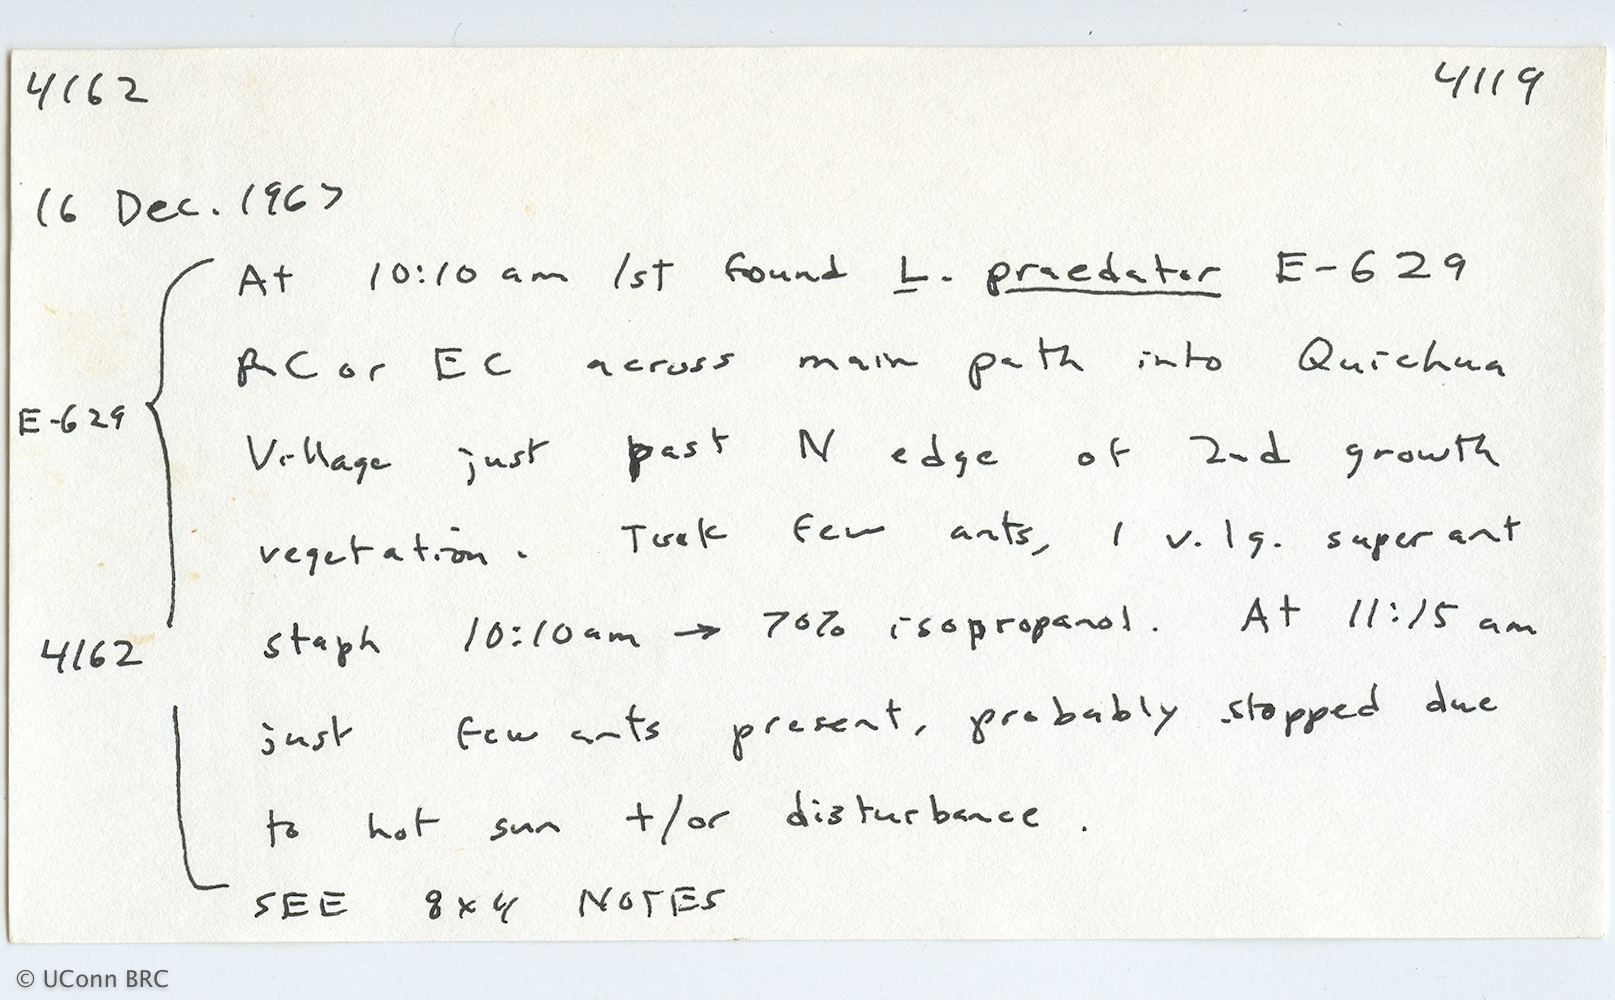 4162 4119
16 Dec. 1967
At 10:10 am 1st found L. praedator E-629
RC or EC across main path into Quichua
E-629
Village just past N edge of 2nd growth
vegetation. Took few ants, 1 v. lg. super ant
staph 10:10 am → 70% isopropanol. At 11:15 am
4162
just few ants present, probably stopped due
to hot sun +/or disturbance.
SEE 8x4 NOTES
© UConn BRC